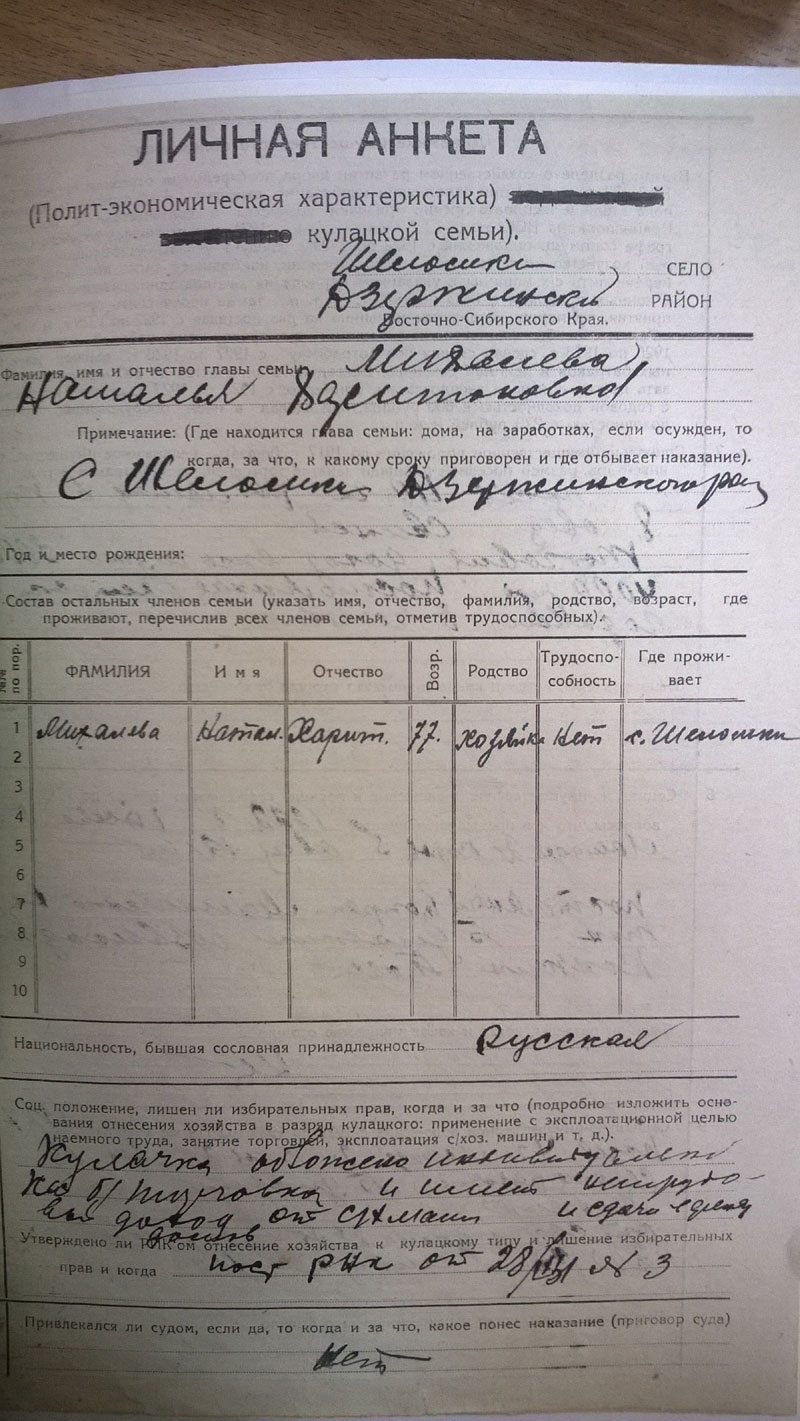 ЛИЧНАЯ АНКЕТА
(Полит-экономическая характеристика)
кулацкой семьи).
Шеломки СЕЛО
Дзержинский РАЙОН
Восточно-Сибирского Края.
Фамилия, имя и отчество главы семьи Михалева
Наталья Харитоновна
Примечание: (Где находится глава семьи: дома, на заработках, если осужден, то
когда, за что, к какому сроку приговорен и где отбывает наказание).
С Шеломки Дзержинского рай
Год и место рождения:
Состав остальных членов семьи (указать имя, отчество, фамилия, родство, возраст, где
проживают, перечислив всех членов семьи, отметив трудоспособных).
№№ по пор. ФАМИЛИЯ Имя Отчество Возр. Родство Трудоспо-собность Где прожи-вает
1 Михалева Натал. Харит. 77. хозяйк. Нет с. Шеломки
2
3
4
5
6
7
8
9
10
Национальность, бывшая сословная принадлежность Русская
Соц. положение, лишен ли избирательных прав, когда и за что (подробно изложить осно-
вания отнесения хозяйства в разряд кулацкого: применение с эксплоатационной целью
наемного труда, занятие торговлей, эксплоатация с/хоз. машин и т. д.).
Кулачка обложено индивидуально
как б/торговка и имеет нетрудо-
вой доход от с/х маши и сдачи
Утверждено ли РИК'ом отнесение хозяйства к кулацкому типу и лишение избирательных
прав и когда пост РИК от 28/ 31 № 3
Привлекался ли судом, если да, то когда и за что, какое понес наказание (приговор суда)
Нет